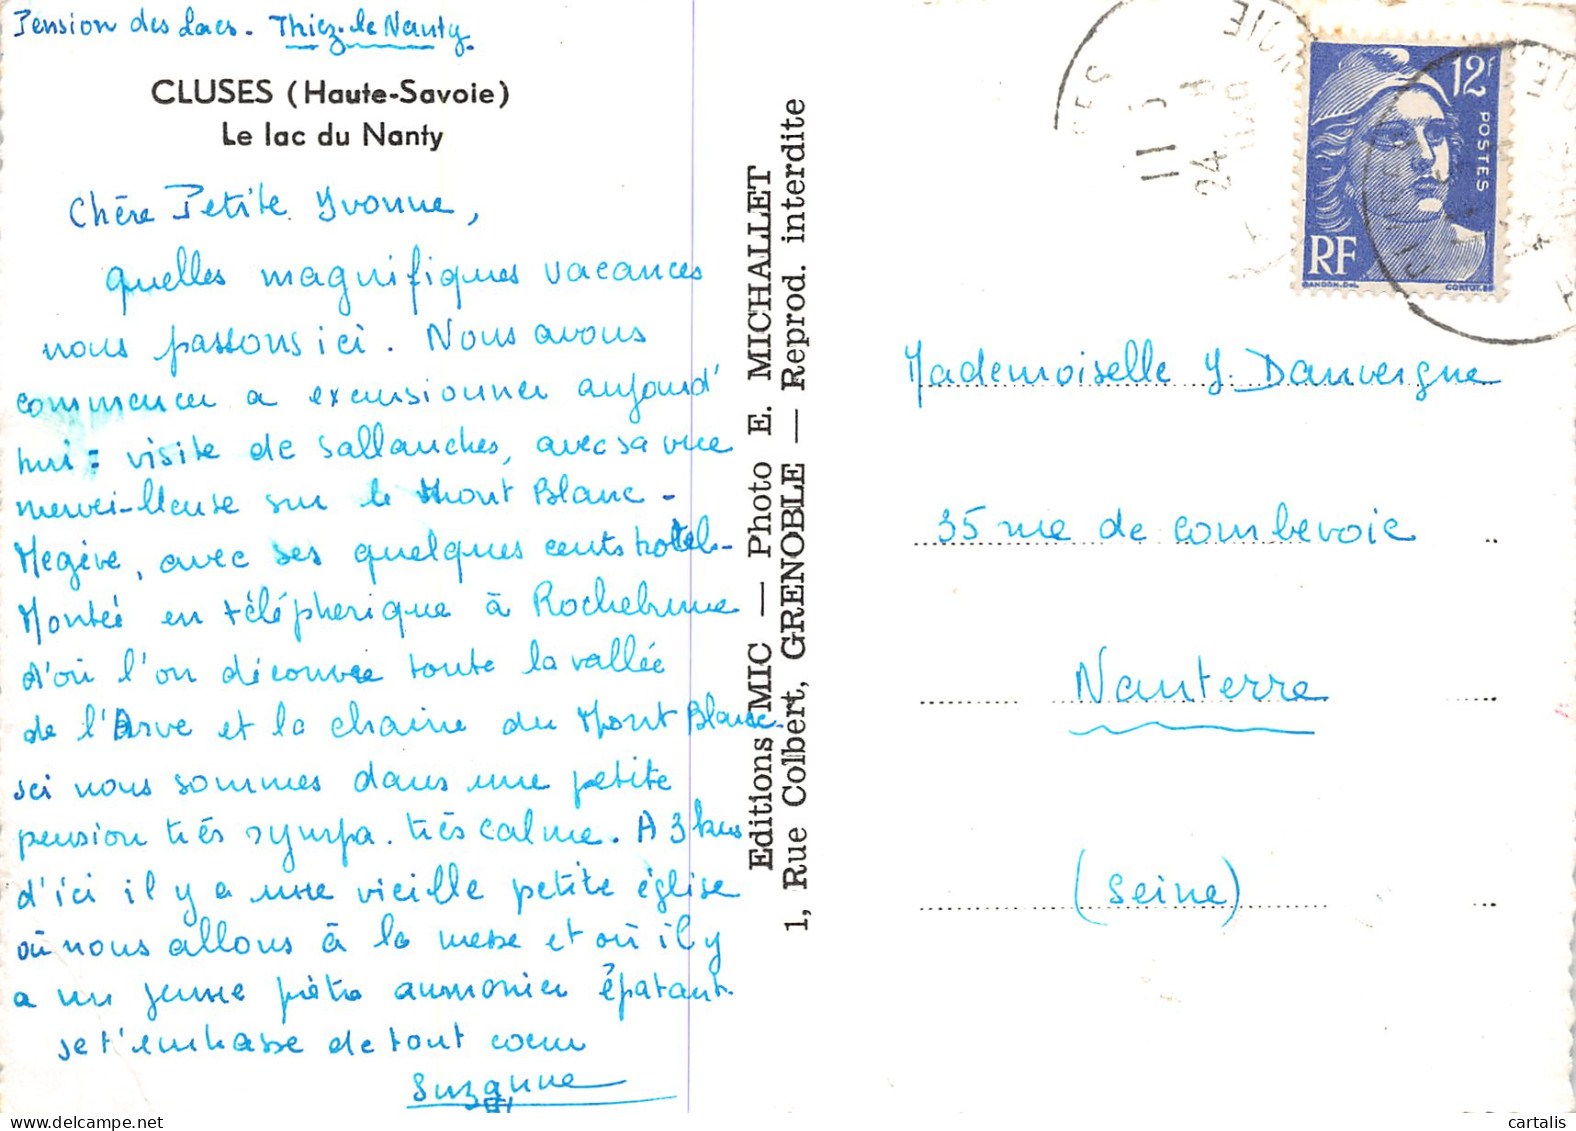 Pension des Lacs. Thiez-le Nanty.
CLUSES (Haute-Savoie)
Le lac du Nanty
Chère Petite Yvonne,
quelles magnifiques vacances
nous passons ici. Nous avons
commencer a excursionner aujourd'
hui : visite de Sallanches, avec sa vue
mervei-lleuse sur le Mont Blanc -
Megève, avec ses quelques cents hotels-
Montée en téléphérique à Rochebrune
d'où l'on découvre toute la vallée
de l'Arve et la chaine du Mont Blanc.
ici nous sommes dans une petite
pension très sympa. très calme. A 3 kms
d'ici il y a une vieille petite église
où nous allons à la messe et où il y
a un jeune prêtre aumonier épatant.
Je t'embrasse de tout coeur
Suzanne
Editions MIC — Photo E. MICHALLET
1, Rue Colbert, GRENOBLE — Reprod. interdite
12f
POSTES
RF
GANDON.Del.
CORTOT.SC
11 5
24 - 8
Mademoiselle Y. Danvergne
35 rue de Courbevoie
Nanterre
(Seine)
cartalis